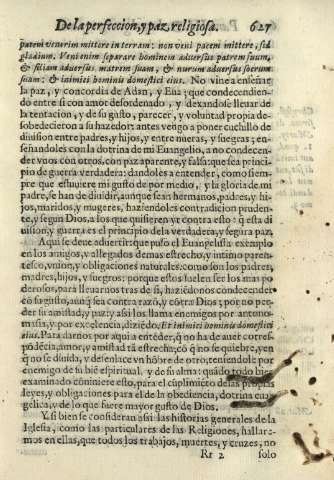 De la perfeccion, y paz, religiosa. 627
pacem venerim mittere in terram: non veni pacem mittere, sed
gladium. Veni enim separare hominem adversus patrem suum,
& filiam adversus matrem suam, & nurum adversus socrum
suam; & inimici hominis domestici eius. No vine a enseñar
la paz, y concordia de Adan, y Eua; que condecendien-
do entre si con amor desordenado, y dexandose lleuar de
la tentacion, y de su gusto, parecer, y voluntad propia de-
sobedecieron a su hazedor: antes vengo a poner cuchillo de
diuision entre padres, y hijos, y entre nueras, y suegras; en-
señandoles con la dotrina de mi Euangelio, a no condecen-
der vnos con otros, con paz aparente, y falsa: que sea princi-
pio de guerra verdadera: dandoles a entender, como siem-
pre que estuuiere mi gusto de por medio, y la gloria de mi
padre, se han de diuidir, aunque sean hermanos, padres, y hi-
jos, maridos, y mugeres, haziendoles contradicion pruden-
te, y segun Dios, a los que quisieren yr contra esto: q̃ esta di
uision, y guerra es el principio dela verdadera, y segura paz.
Aqui se deue aduertir: que puso el Euangelista exemplo
en los amigos, y allegados demas estrecho, y intimo paren-
tesco, vnion, y obligaciones naturales: como son los padres,
madres, hijos, y suegros: porque estos suelen ser los mas po
derosos, para lleuarnos tras de si, haziẽdonos condescender
cõ su gusto, aunq̃ sea contra razõ, y cõtra Dios; por no per-
der su amistad, y paz; y assi los llama enemigos por antono-
masia, y por excelencia, diziẽdo, Et inimici hominis domestici
eius. Para darnos por aqui a entẽder, q̃ no ha de auer corres-
põdẽcia, amor, y amistad tã estrecha; cõ q̃ no se quiebre, y en
q̃ no se diuida, y desenlace vn hõbre de otro, teniendole por
enemigo de su biẽ espiritual, y de su alma: quãdo todo biẽ
examinado cõuiniere esto, para el cumplimiẽto de las propias
leyes, y obligaciones para el de la obediencia, dotrina euã
gelica, y de lo que fuere mayor gusto de Dios.
Y si bien se consideran assi las historias generales de la
Iglesia, como las particulares de sus Religiones, hallare-
mos en ellas, que todos los trabajos, muertes, y cruzes, no
Rr 2 solo